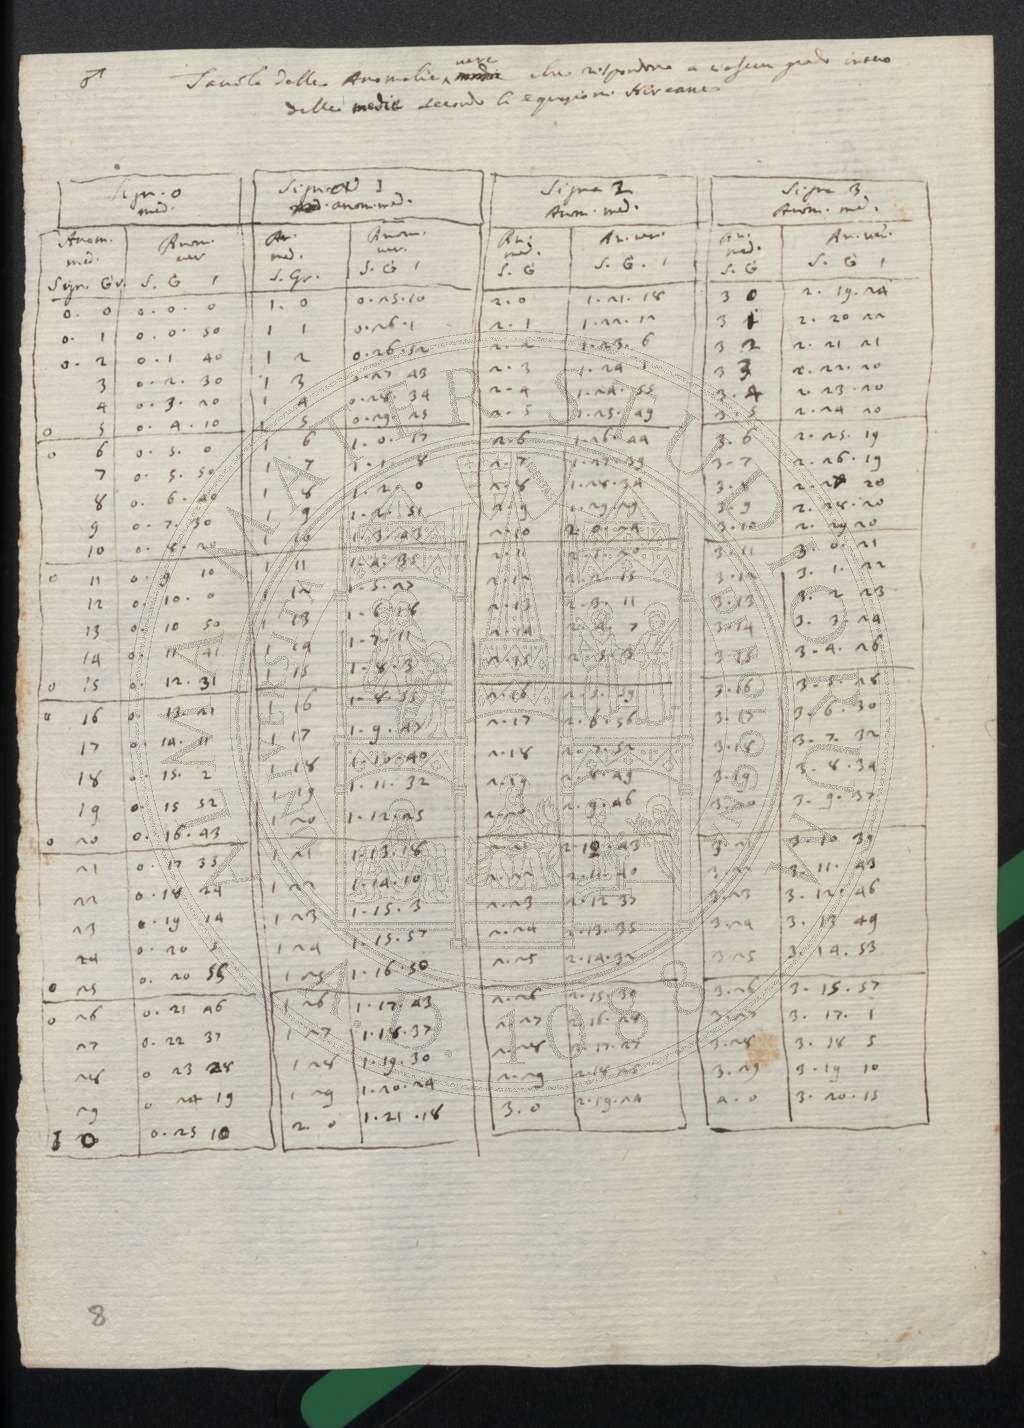 ♂ Tavola delle Anomalie vere medie che rispondono a ciascun grado intero
delle medie secondo le equazioni Kircane
Sign. 0 Sign. 1 Signa 2 Signa 3
med. anom. med. Anom. med. Anom. med.
Anom. Anom. An. Anom. An. An. ver. An. An. ver.
med. ver med. ver. med. med.
Sign. Gr. S. G I S. Gr. S. G I S. G S. G. I S. G S. G I
0. 0 0. 0. 0 1. 0 0. 25. 10 2. 0 1. 21. 18 3 0 2. 19. 24
0. 1 0. 0. 50 1 1 0. 26. 1 2. 1 1. 22. 12 3 1 2. 20 22
0. 2 0. 1 40 1 2 0. 26. 52 2. 2 1. 23. 6 3 2 2. 21 21
3 0. 2. 30 1 3 0. 27 43 2. 3 1. 24 1 3 3 2. 22. 20
4 0. 3. 20 1 4 0. 28. 34 2. 4 1. 24. 55 3. 4 2. 23. 20
0 5 0. 4. 10 1 5 0. 29. 25 2. 5 1. 25. 49 3. 5 2. 24 20
0 6 0. 5. 0 1 6 1. 0. 17 2. 6 1. 26. 44 3. 6 2. 25. 19
7 0. 5. 50 1 7 1. 1. 8 2. 7 1. 27. 39 3. 7 2. 26. 19
8 0. 6. 40 1 8 1. 2. 0 2. 8 1. 28. 34 3. 8 2. 27 20
9 0. 7. 30 1 9 1. 2. 51 2. 9 1. 29. 29 3. 9 2. 28. 20
10 0. 8. 20 1 10 1. 3. 43 2. 10 2. 0. 24 3. 10 2. 29 20
0 11 0. 9 10 1 11 1. 4. 35 2. 11 2. 1. 20 3. 11 3. 0. 21
12 0. 10. 0 1 12 1. 5. 27 2. 12 2. 2. 15 3. 12 3. 1. 22
13 0. 10 50 1 13 1. 6. 18 2. 13 2. 3. 11 3. 13 3. 2 23
14 0. 11 41 1 14 1. 7. 11 2. 14 2. 4. 7 3. 14 3. 3. 24
0 15 0. 12. 31 1 15 1. 8. 3 2. 15 2. 5. 3 3. 15 3. 4. 26
0 16 0. 13. 21 1 16 1. 8. 55 2. 16 2. 5. 59 3. 16 3. 5. 28
17 0. 14. 11 1 17 1. 9. 47 2. 17 2. 6. 56 3. 17 3. 6. 30
18 0. 15. 2 1 18 1. 10. 40 2. 18 2. 7. 52 3. 18 3. 7. 32
19 0. 15 52 1 19 1. 11. 32 2. 19 2. 8. 49 3. 19 3. 8. 34
0 20 0. 16. 43 1 20 1. 12. 25 2. 20 2. 9. 46 3. 20 3. 9. 37
21 0. 17 33 1 21 1. 13. 18 2. 21 2. 10. 43 3. 21 3. 10 39
22 0. 18 24 1 22 1. 14. 10 2. 22 2. 11. 40 3. 22 3. 11. 43
23 0. 19 14 1 23 1. 15. 3 2. 23 2. 12 37 3. 23 3. 12. 46
24 0. 20 5 1 24 1. 15. 57 2. 24 2. 13. 35 3. 24 3. 13 49
0 25 0. 20 55 1 25 1. 16. 50 2. 25 2. 14. 32 3 25 3. 14. 53
0 26 0. 21 46 1 26 1. 17. 43 2. 26 2. 15. 30 3. 26 3. 15. 57
27 0. 22 37 1 27 1. 18. 37 2. 27 2. 16. 28 3. 27 3. 17. 1
28 0 23 28 1 28 1. 19. 30 2. 28 2. 17. 27 3. 28 3. 18 5
29 0 24 19 1 29 1. 20. 24 2. 29 2. 18. 25 3. 29 3. 19 10
1 0 0. 25 10 2. 0 1. 21. 18 3. 0 2. 19. 24 4. 0 3. 20. 15
8
ALMA MATER STUDIORUM
A.D. 1088